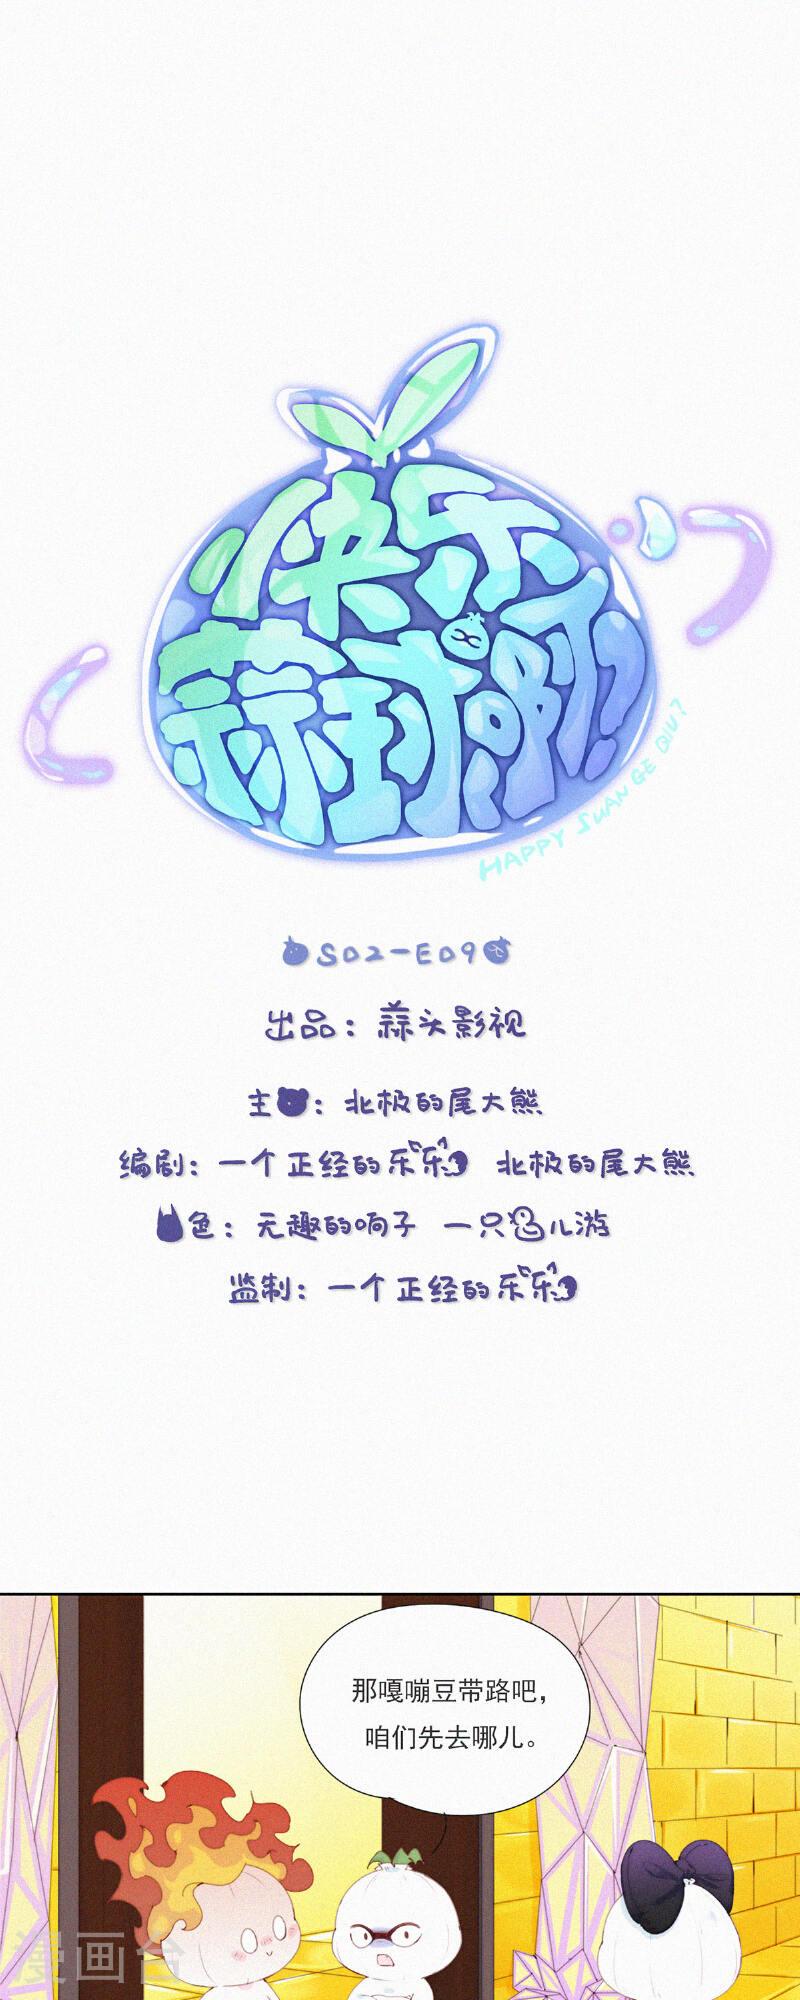 快乐
蒜球啊
HAPPY SUAN GE QIU?
S02-E09
出品：蒜头影视
主：北极的尾大熊
编剧：一个正经的乐乐 北极的尾大熊
色：无趣的响子 一只儿游
监制：一个正经的乐乐
那嘎嘣豆带路吧，
咱们先去哪儿。
漫画台